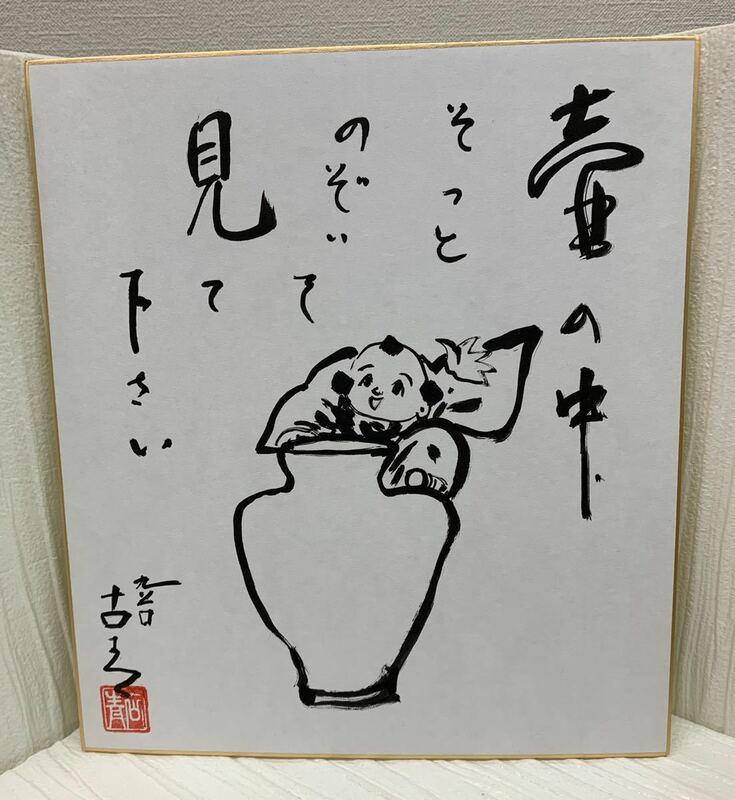 壷の中
そっと
のぞいて
見て
下さい